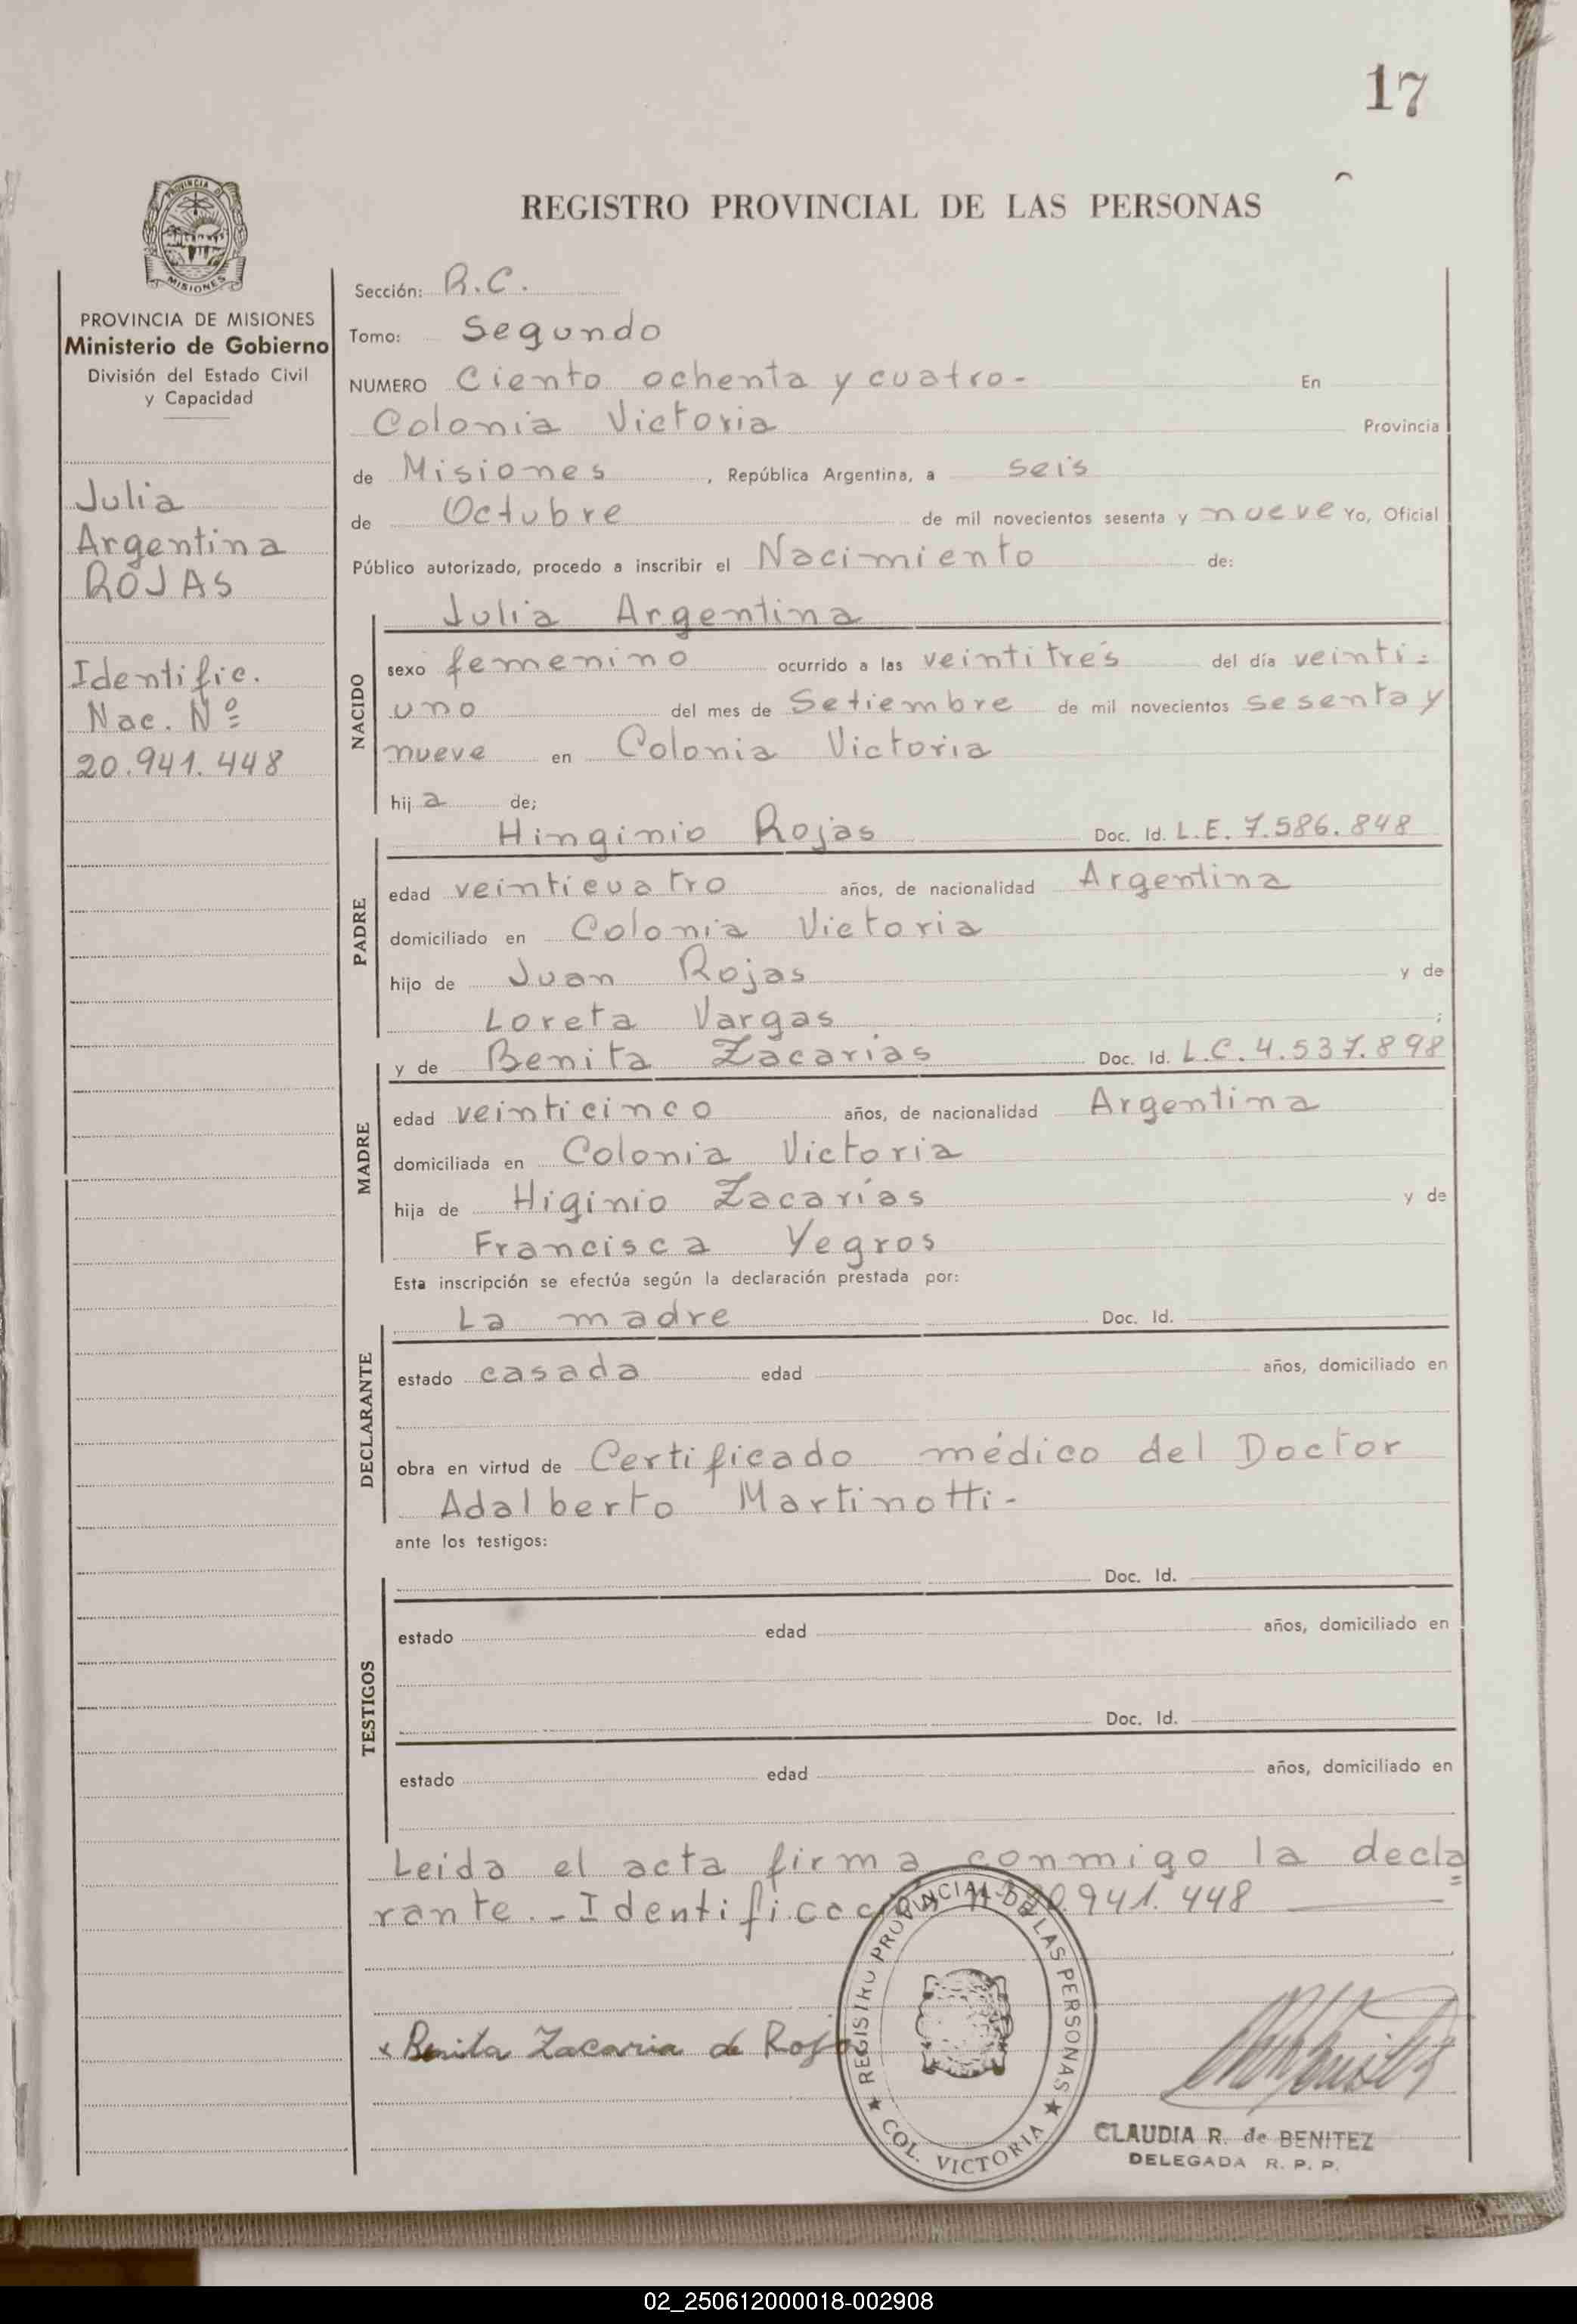 17
REGISTRO PROVINCIAL DE LAS PERSONAS
PROVINCIA DE MISIONES
Ministerio de Gobierno
División del Estado Civil
y Capacidad
Julia
Argentina
ROJAS
Identific.
Nac. Nº
20.941.448
Sección: R.C.
Tomo: Segundo
NUMERO Ciento ochenta y cuatro- En
Colonia Victoria Provincia
de Misiones, República Argentina, a seis
de Octubre de mil novecientos sesenta y nueve Yo, Oficial
Público autorizado, procedo a inscribir el Nacimiento de:
NACIDO
Julia Argentina
sexo femenino ocurrido a las veintitrés del día veinti=
uno del mes de Setiembre de mil novecientos sesenta y
nueve en Colonia Victoria
hija de;
PADRE
Hinginio Rojas Doc. Id. L.E. 7.586.848
edad veinticuatro años, de nacionalidad Argentina
domiciliado en Colonia Victoria
hijo de Juan Rojas y de
Loreta Vargas ;
MADRE
y de Benita Zacarias Doc. Id. L.C. 4.537.898
edad veinticinco años, de nacionalidad Argentina
domiciliada en Colonia Victoria
hija de Higinio Zacarías y de
Francisca Yegros
Esta inscripción se efectúa según la declaración prestada por:
DECLARANTE
La madre Doc. Id.
estado casada edad años, domiciliado en
obra en virtud de Certificado médico del Doctor
Adalberto Martinotti-
ante los testigos:
TESTIGOS
Doc. Id.
estado edad años, domiciliado en
Doc. Id.
estado edad años, domiciliado en
Leida el acta firma conmigo la decla=
rante.-Identificación 20.941.448
x Benita Zacaria de Rojas
REGISTRO PROVINCIAL DE LAS PERSONAS
★ COL. VICTORIA ★
CLAUDIA R. de BENITEZ
DELEGADA R. P. P.
02_250612000018-002908